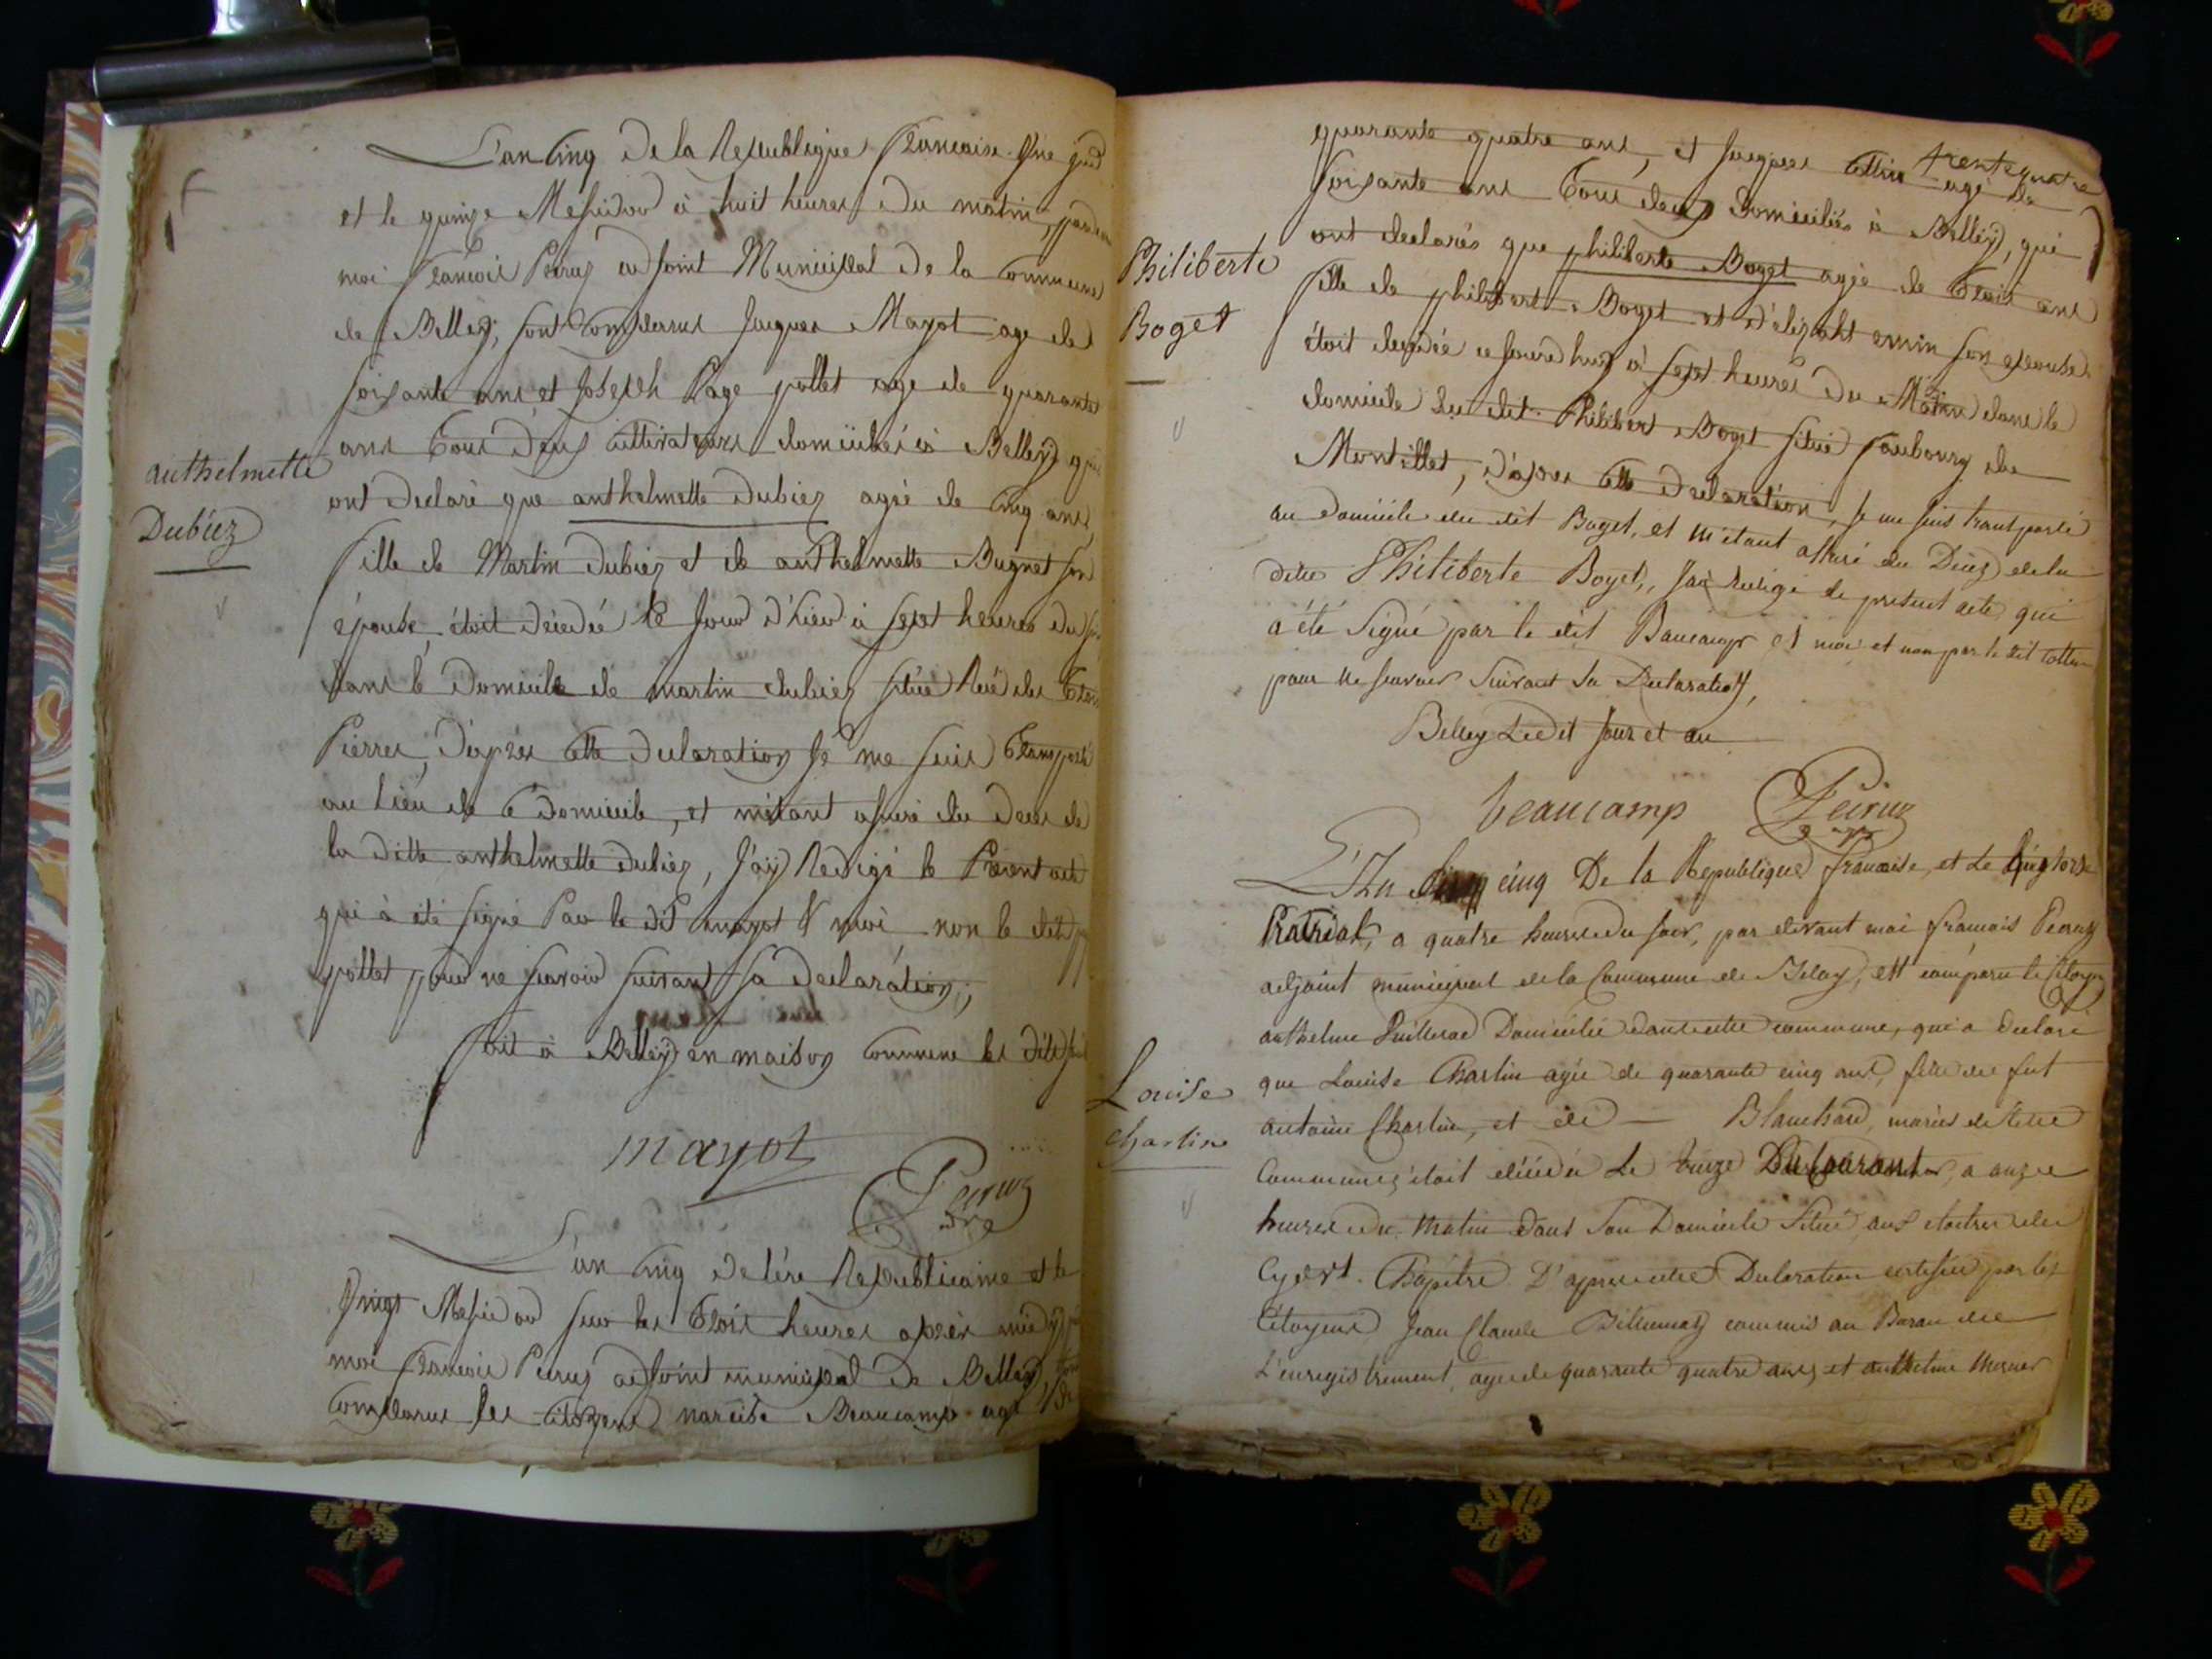 L'an Cinq De la Republique francaise Une
et le quinze Messidor à huit heures Du matin, par
moi francois Peruz adjoint Municipal De la commune
de Belley, sont comparus Jacques Mayot age de
soixante ans et Joseph Page pollet age de quarante
ans tous Deux cultivateurs domiciliés à Belley qui
anthelmette
ont Declaré que anthelmette Dubiez agée de cinq ans
Dubiez
fille de Martin Dubiez et de anthelmette Bugnet son
épouse, étoit décédée le Jour d'hier à sept heures du
dans le Domicile de martin dubiez situé Rue des
Pierres, D'après cette declaration Je me suis transporté
au lieu de ce Domicile, et métant assuré du deces de
la ditte anthelmette dubiez, J'aÿ Redigé le Present acte
qui à été signé Par le dit mayot & moi non le dit
pollet pour ne scavoir suivant sa declaration;
fait à Belley en maison commune les dits
mayot
Peiruz
L'an cinq de lére Republicaine et le
Vingt Messidor sur les trois heures après midÿ
moi francois Peruz adjoint municipal de Belley,
comparus les citoyens narcisse Beaucamp agé de
trente quatre
quarante quatre ans, et Jacques Cottin agé de
soixante ans tous deux domiciliés à Belleÿ, qui
Philiberte
ont declarés que philiberte Boget agée de trois ans
Boget
fille de philibert Boget et d'elizabt emin son epouse
étoit decedée ce Jourd'huy à sept heures du Matin dans le
domicile du dit Philibert Boget situé faubourg de
Montillet, d'après cette declaration, Je me suis transporté
au domicile du dit Boget, et m'étant assuré du Décez de la
dite Philiberte Boget, J'ai redigé le present acte qui
a été signé par le dit Baucamp et moi et non par le dit Cottin
pour ne scavoir suivant sa Declaration,
Belley Le dit Jour et an
beaucamp Peiruz
L'An cinq De la Republique francaise, et Le
Prairial, a quatre heures du soir, par devant moi francois Peruz
adjoint municipal de la Commune de Belay, est comparu le Citoyen
anthelme Domicilié dans cette commune, qui a declaré
Louise
que Louise Charlin agée de quarante cinq ans, fille de fut
Charline
antoine Charlin, et de — Blanchard, mariés de cette
Commune, étoit décédée Le Du Courant, a onze
heures du matin dans son Domicile situé aux cloitres de
Cydvt. Chapitre D'apres cette Declaration certifiée par les
Citoyens Jean Claude commis au Burau de
L'enregistrement, agé de quarante quatre ans, et anthelme